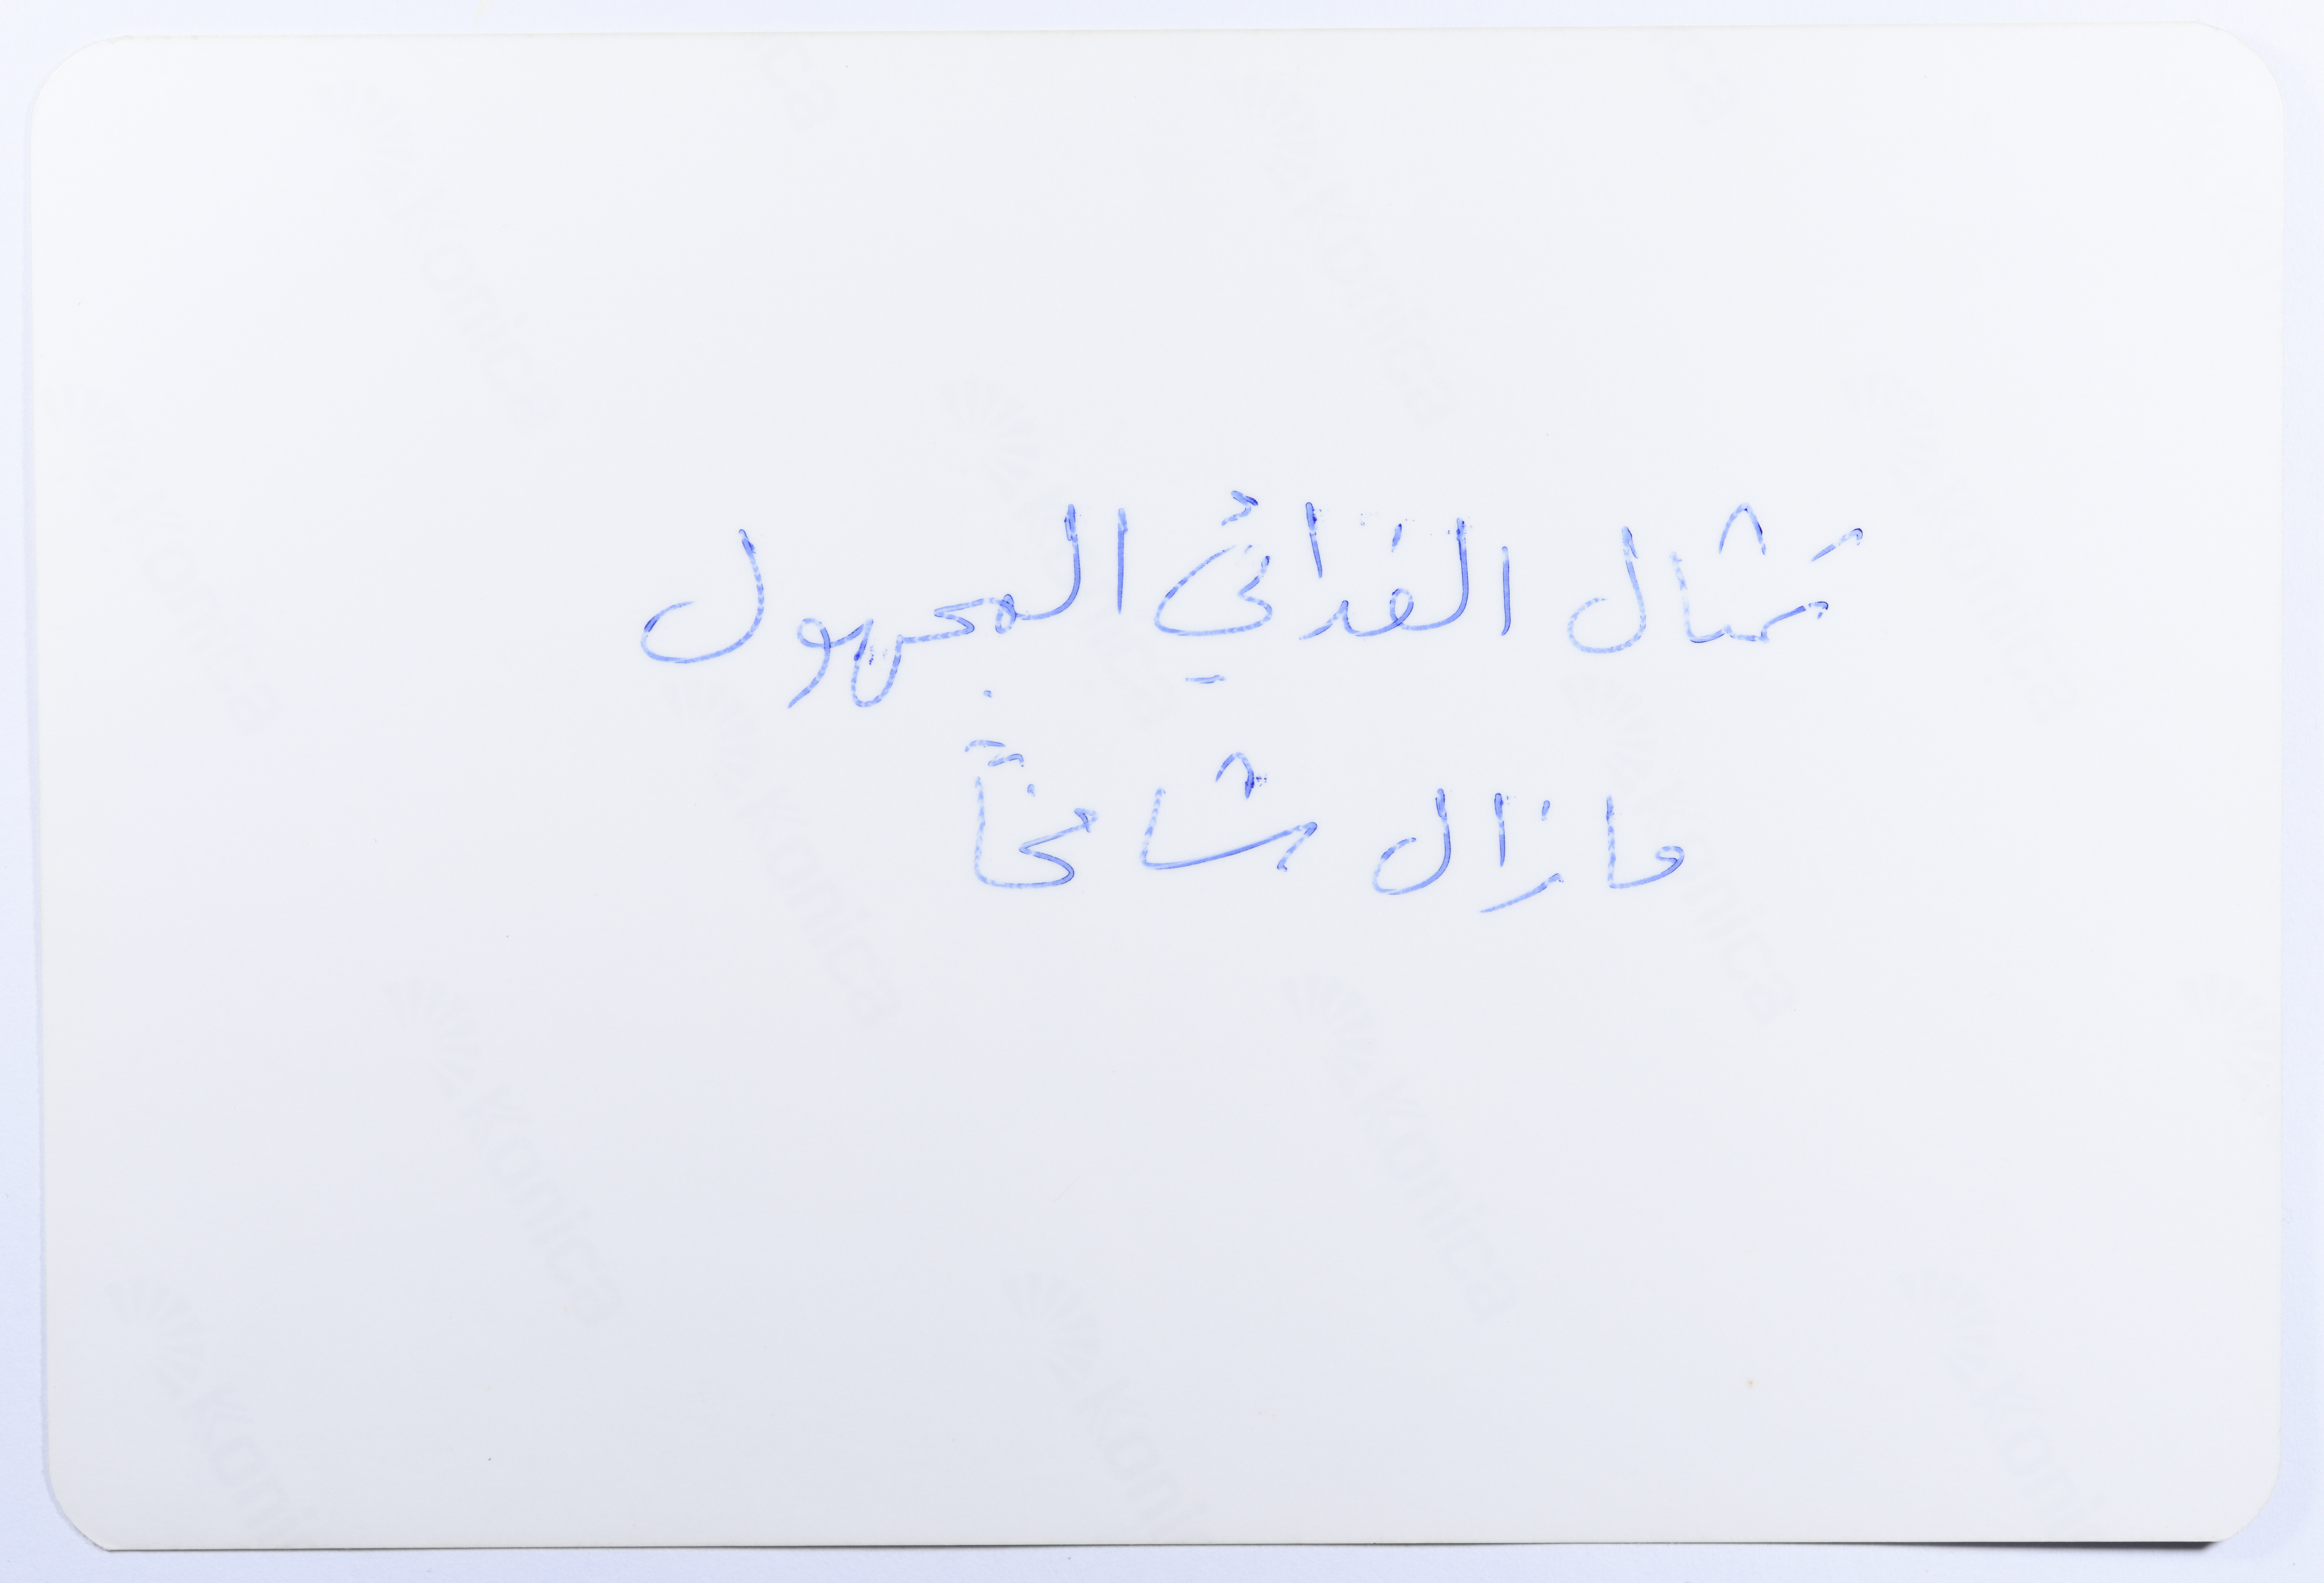 تمثال الفدائي المجهول
مازال شامخاً